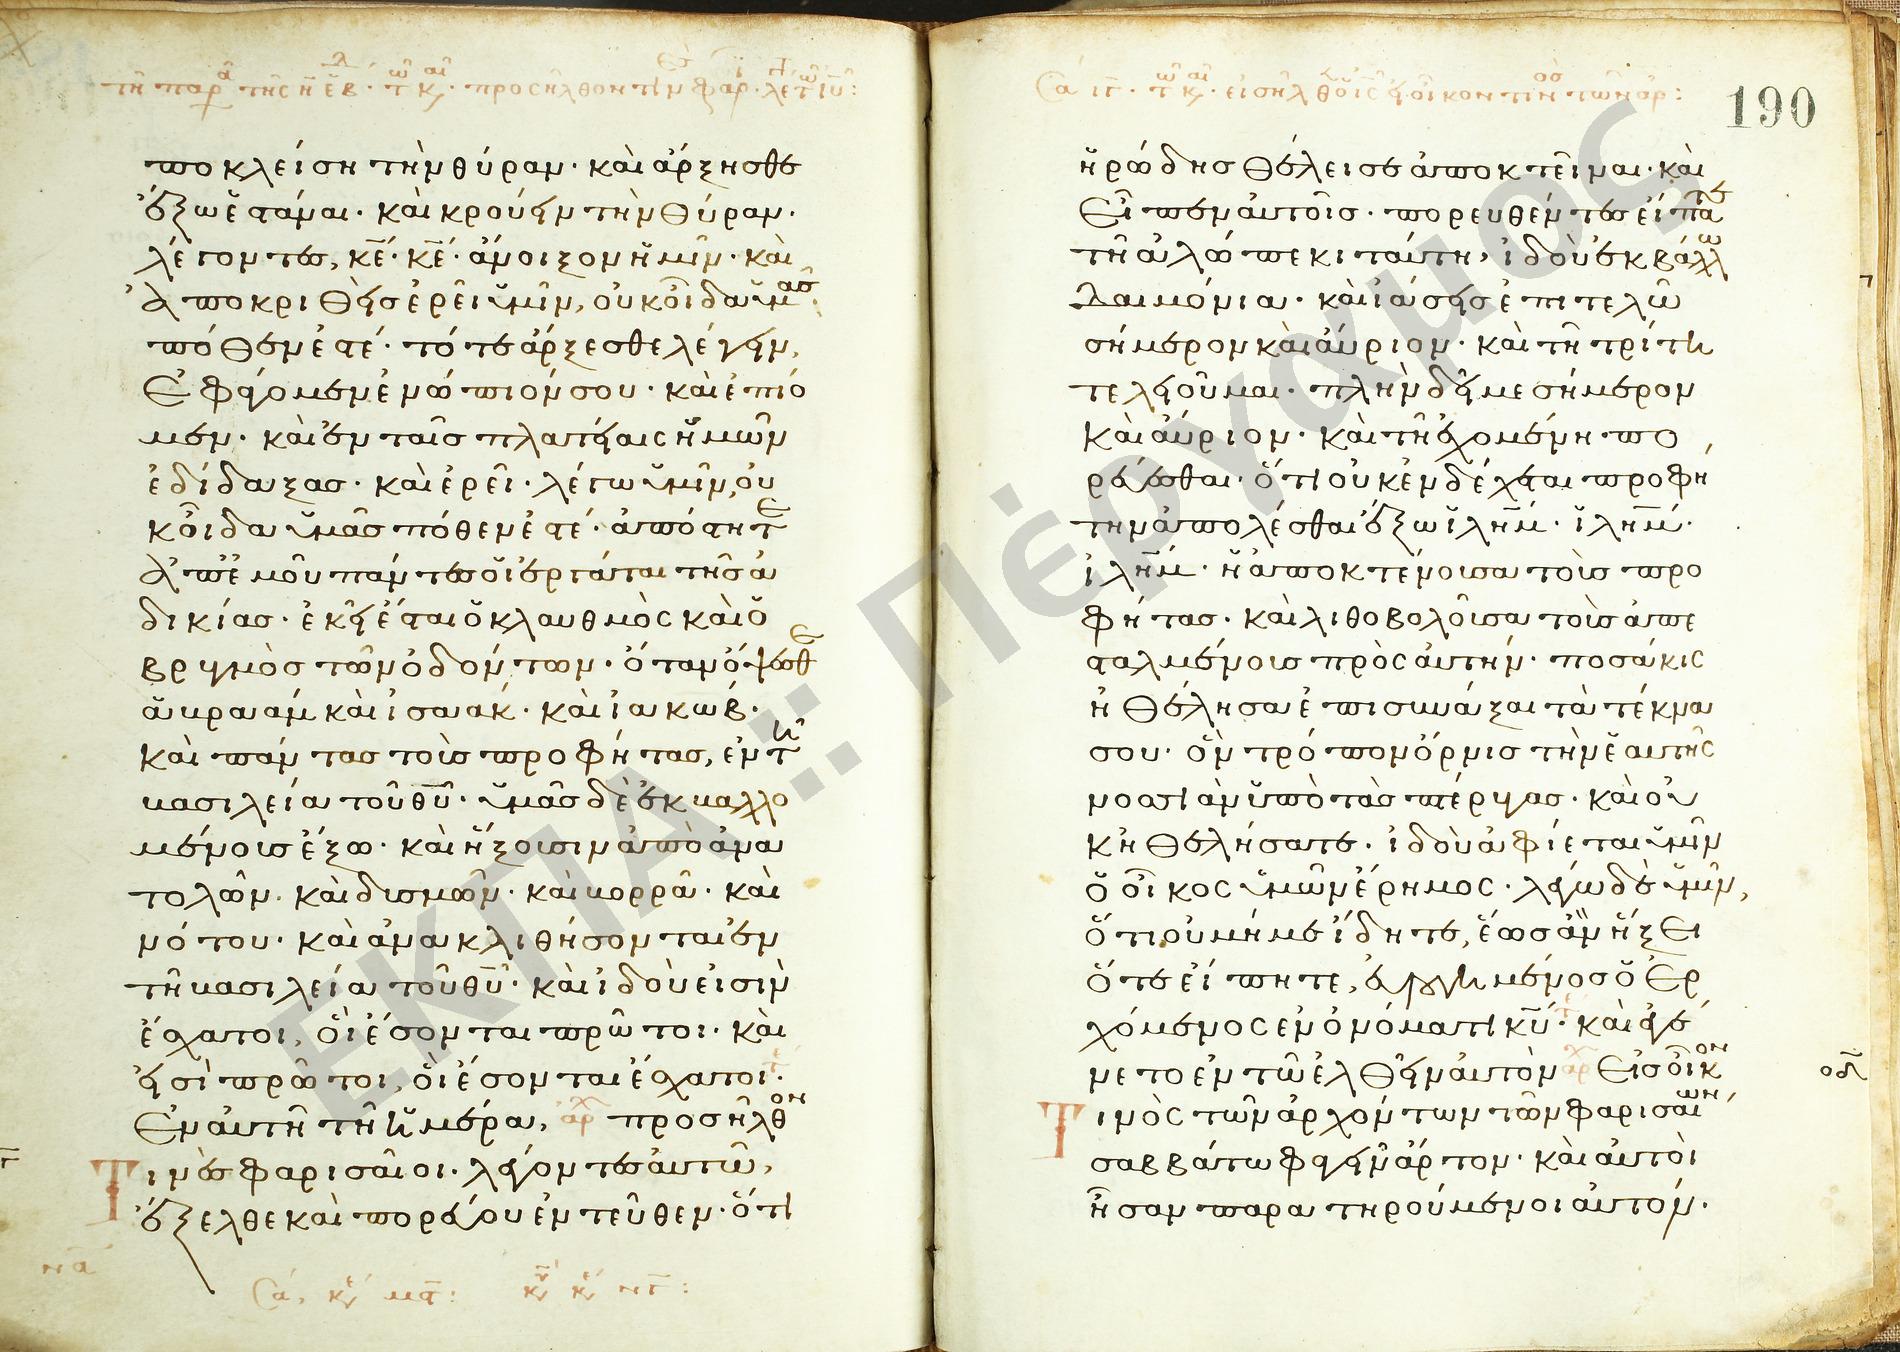 τῆ παρα τῆς η ἑβ. τω και. προσῆλθον τινες φαρ. λετω ιυ:
ποκλείση τὴν θύραν· καὶ ἄρξησθε
ἔξω ἑστάναι· καὶ κρούειν τὴν θύραν·
λέγοντες, κ̅ε̅· κ̅ε̅· ἄνοιξον ἡμῖν· καὶ
ἀποκριθεὶς ἐρεῖ ὑμῖν, οὐκ οἶδα ὑμᾶς
πόθεν ἐστέ· τότε ἄρξεσθε λέγειν,
ἐφάγομεν ἐνώπιόν σου· καὶ ἐπίο
μεν· καὶ ἐν ταῖς πλατείαις ἡμῶν
ἐδίδαξας· καὶ ἐρεῖ· λέγω ὑμῖν, οὐ
κ οἶδα ὑμᾶς πόθεν ἐστέ· ἀπόστητε
ἀπ' ἐμοῦ πάντες οἱ ἐργάται τῆς ἀ
δικίας· ἐκεῖ ἔσται ὁ κλαυθμὸς καὶ ὁ
βρυγμὸς τῶν ὀδόντων· ὅταν ὄψεσθε
ἀβρααμ καὶ ἰσαάκ· καὶ ἰακώβ·
καὶ πάντας τοὺς προφήτας, ἐν τῆ
βασιλεία τοῦ θ̅υ̅· ὑμᾶς δὲ ἐκβαλλο
μένους ἔξω· καὶ ἥξουσιν ἀπὸ ἀνα
τολῶν· καὶ δυσμῶν· καὶ βορρᾶ· καὶ
νότου· καὶ ἀνακλιθήσονται ἐν
τῆ βασιλεία τοῦ θ̅υ̅· καὶ ἰδοὺ εἰσὶν
ἔσχατοι, οἳ ἔσονται πρῶτοι· καὶ
εἰσὶ πρῶτοι, οἳ ἔσονται ἔσχατοι·
Ἐν αὐτῆ τῆ ἡμέρα, ἀρχ προσῆλθον
Τινὲς φαρισαῖοι· λέγοντες αὐτῶ,
ἔξελθε καὶ πορεύου ἐντεῦθεν· ὅτι
190
ἡρώδης θέλει σε ἀποκτεῖναι· καὶ
Εἶπεν αὐτοῖς· πορευθέντες εἴπατε
τῆ ἀλώπεκι ταύτη, ἰδοὺ ἐκβάλλω
δαιμόνια· καὶ ἰάσεις ἐπιτελῶ
σήμερον καὶ αὔριον· καὶ τῆ τρίτη
τελειοῦμαι· πλὴν δεῖ με σήμερον
καὶ αὔριον· καὶ τῆ ἐχομένη πο
ρεύεσθαι· ὅτι οὐκ ἐνδέχεται προφή
την ἀπολέσθαι ἔξω ἰ̅λ̅η̅μ̅· ἰ̅λ̅η̅μ̅·
ἰ̅λ̅η̅μ̅· ἡ ἀποκτένουσα τοὺς προ
φήτας· καὶ λιθοβολοῦσα τοὺς ἀπε
σταλμένους πρὸς αὐτήν· ποσάκις
ἠθέλησα ἐπισυνάξαι τὰ τέκνα
σου· ὃν τρόπον ὄρνις τὴν ἑαυτῆς
νοσσιὰν ὑπὸ τὰς πτέρυγας· καὶ οὐ
κ ἠθελήσατε· ἰδοὺ ἀφίεται ὑμῖν
ὁ οἶκος ὑμῶν ἔρημος· λέγω δὲ ὑμῖν,
ὅτι οὐ μή με ἴδητε, ἕως ἂν ἥξει
ὅτε εἴπητε, εὐλογημένος ὁ ἐρ
χόμενος ἐν ὀνόματι κ̅υ̅· καὶ ἐγέ
νετο ἐν τῶ ἐλθεῖν αὐτὸν ἀρχ Εἰς οἶκον
Τινὸς τῶν ἀρχόντων τῶν φαρισαίων
σαββάτω φαγεῖν ἄρτον· καὶ αὐτοὶ
ἦσαν παρατηρούμενοι αὐτόν·
ΕΚΠΑ :: Πέργαμος